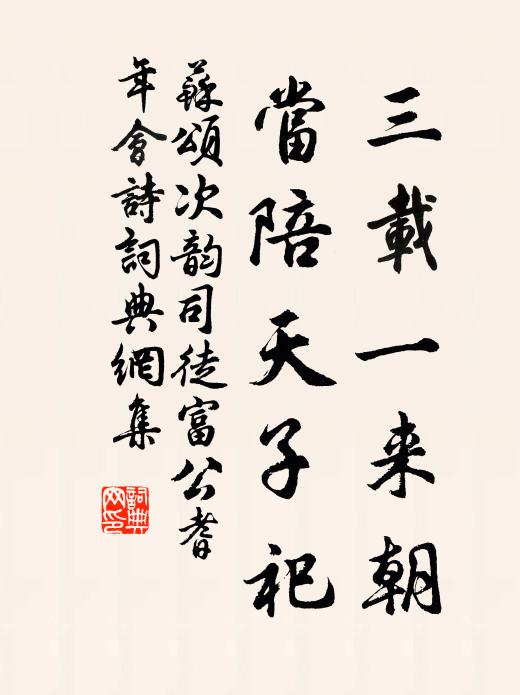 三載一来朝
當陪天子祀
蘇頌次韵司徒富公耆
年會詩詞典網集
詞典
网印